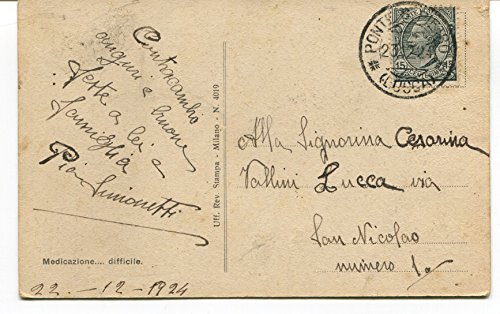 Contracambio
auguri e buone
feste a lei e
famiglia
Pia Simonetti
Medicazione.... difficile.
22.-12-1924
Uff. Rev. Stampa - Milano - N. 4019
PONTE
(LUCCA)
15
Alla Signorina Cesarina
Vallini Lucca via
San Nicolao
numero 1a